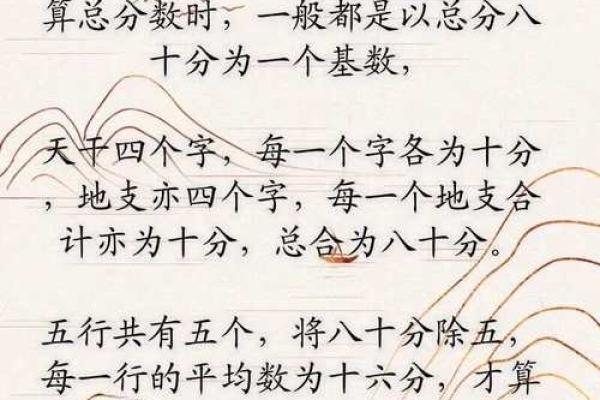 算总分数时，一般都是以总分八
十分为一个基数，
天干四个字，每一个字各为十分
，地支亦四个字，每一个地支合
计亦为十分，总合为八十分。
五行共有五个，将八十分除五，
每一行的平均数为十六分，才算